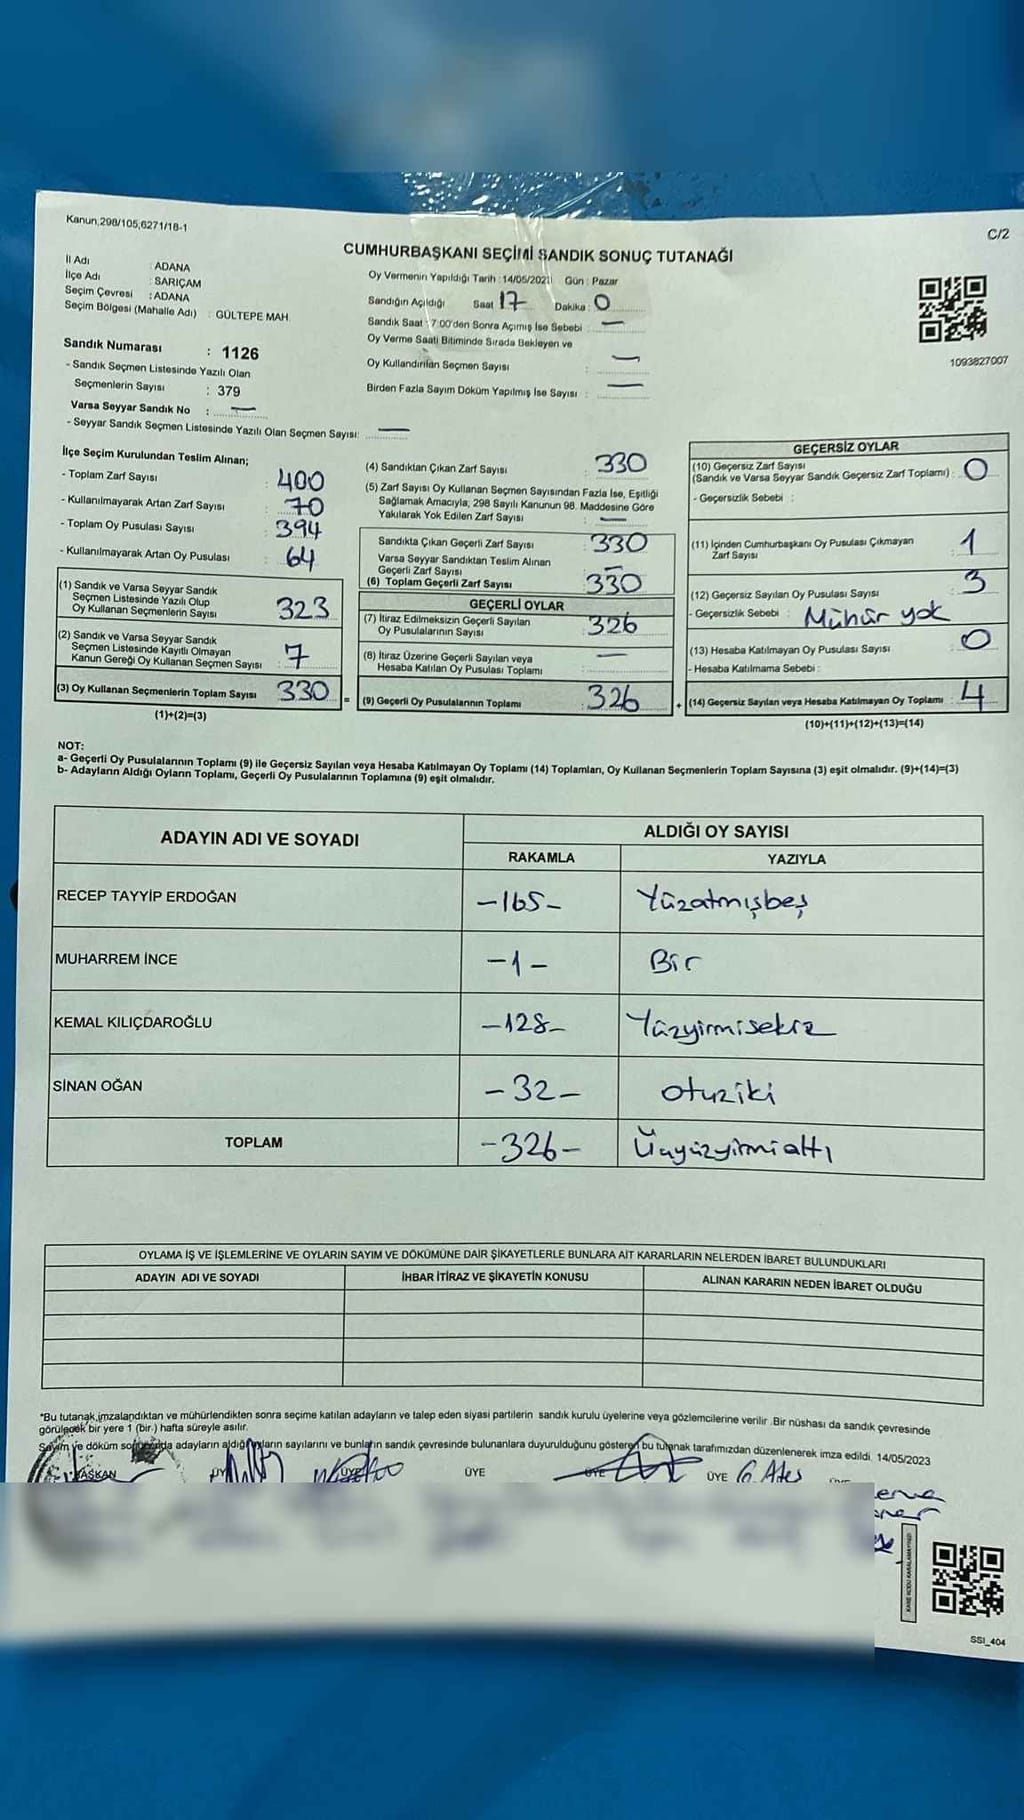 Kanun,298/105,6271/18-1
C/2
CUMHURBAŞKANI SEÇİMİ SANDIK SONUÇ TUTANAĞI
İl Adı : ADANA
İlçe Adı : SARIÇAM
Seçim Çevresi : ADANA
Seçim Bölgesi (Mahalle Adı) : GÜLTEPE MAH.
Oy Vermenin Yapıldığı Tarih : 14/05/2023 Gün : Pazar
Sandığın Açıldığı Saat 17 Dakika : 0
Sandık Saat 17:00'den Sonra Açımış İse Sebebi : —
Oy Verme Saati Bitiminde Sırada Bekleyen ve
Oy Kullandırılan Seçmen Sayısı : —
Birden Fazla Sayım Döküm Yapılmış İse Sayısı : —
1093827007
Sandık Numarası : 1126
- Sandık Seçmen Listesinde Yazılı Olan
Seçmenlerin Sayısı : 379
Varsa Seyyar Sandık No : —
- Seyyar Sandık Seçmen Listesinde Yazılı Olan Seçmen Sayısı: —
İlçe Seçim Kurulundan Teslim Alınan;
- Toplam Zarf Sayısı : 400
- Kullanılmayarak Artan Zarf Sayısı : 70
- Toplam Oy Pusulası Sayısı : 394
- Kullanılmayarak Artan Oy Pusulası : 64
(1) Sandık ve Varsa Seyyar Sandık
Seçmen Listesinde Yazılı Olup
Oy Kullanan Seçmenlerin Sayısı : 323
(2) Sandık ve Varsa Seyyar Sandık
Seçmen Listesinde Kayıtlı Olmayan
Kanun Gereği Oy Kullanan Seçmen Sayısı : 7
(3) Oy Kullanan Seçmenlerin Toplam Sayısı : 330
(1)+(2)=(3)
(4) Sandıktan Çıkan Zarf Sayısı : 330
(5) Zarf Sayısı Oy Kullanan Seçmen Sayısından Fazla İse, Eşitliği
Sağlamak Amacıyla, 298 Sayılı Kanunun 98. Maddesine Göre
Yakılarak Yok Edilen Zarf Sayısı : —
Sandıkta Çıkan Geçerli Zarf Sayısı : 330
Varsa Seyyar Sandıktan Teslim Alınan
Geçerli Zarf Sayısı : —
(6) Toplam Geçerli Zarf Sayısı : 330
GEÇERLİ OYLAR
(7) İtiraz Edilmeksizin Geçerli Sayılan
Oy Pusulalarının Sayısı : 326
(8) İtiraz Üzerine Geçerli Sayılan veya
Hesaba Katılan Oy Pusulası Toplamı : —
= (9) Geçerli Oy Pusulalarının Toplamı : 326
GEÇERSİZ OYLAR
(10) Geçersiz Zarf Sayısı
(Sandık ve Varsa Seyyar Sandık Geçersiz Zarf Toplamı) : 0
- Geçersizlik Sebebi :
(11) İçinden Cumhurbaşkanı Oy Pusulası Çıkmayan
Zarf Sayısı : 1
(12) Geçersiz Sayılan Oy Pusulası Sayısı : 3
- Geçersizlik Sebebi : Mühür yok
(13) Hesaba Katılmayan Oy Pusulası Sayısı : 0
- Hesaba Katılmama Sebebi :
+ (14) Geçersiz Sayılan veya Hesaba Katılmayan Oy Toplamı : 4
(10)+(11)+(12)+(13)=(14)
NOT:
a- Geçerli Oy Pusulalarının Toplamı (9) ile Geçersiz Sayılan veya Hesaba Katılmayan Oy Toplamı (14) Toplamları, Oy Kullanan Seçmenlerin Toplam Sayısına (3) eşit olmalıdır. (9)+(14)=(3)
b- Adayların Aldığı Oyların Toplamı, Geçerli Oy Pusulalarının Toplamına (9) eşit olmalıdır.
ADAYIN ADI VE SOYADI ALDIĞI OY SAYISI
RAKAMLA YAZIYLA
RECEP TAYYİP ERDOĞAN -165- Yüzatmışbeş
MUHARREM İNCE -1- Bir
KEMAL KILIÇDAROĞLU -128- Yüzyirmisekiz
SİNAN OĞAN -32- otuziki
TOPLAM -326- Üçyüzyirmialtı
OYLAMA İŞ VE İŞLEMLERİNE VE OYLARIN SAYIM VE DÖKÜMÜNE DAİR ŞİKAYETLERLE BUNLARA AİT KARARLARIN NELERDEN İBARET BULUNDUKLARI
ADAYIN ADI VE SOYADI İHBAR İTİRAZ VE ŞİKAYETİN KONUSU ALINAN KARARIN NEDEN İBARET OLDUĞU
*Bu tutanak,imzalandıktan ve mühürlendikten sonra seçime katılan adayların ve talep eden siyasi partilerin sandık kurulu üyelerine veya gözlemcilerine verilir .Bir nüshası da sandık çevresinde
görülecek bir yere 1 (bir.) hafta süreyle asılır.
Sayım ve döküm sonucunda adayların aldığı oyların sayılarını ve bunların sandık çevresinde bulunanlara duyurulduğunu gösteren bu tutanak tarafımızdan düzenlenerek imza edildi. 14/05/2023
BAŞKAN ÜYE ÜYE ÜYE ÜYE G. Ateş
SSI_404